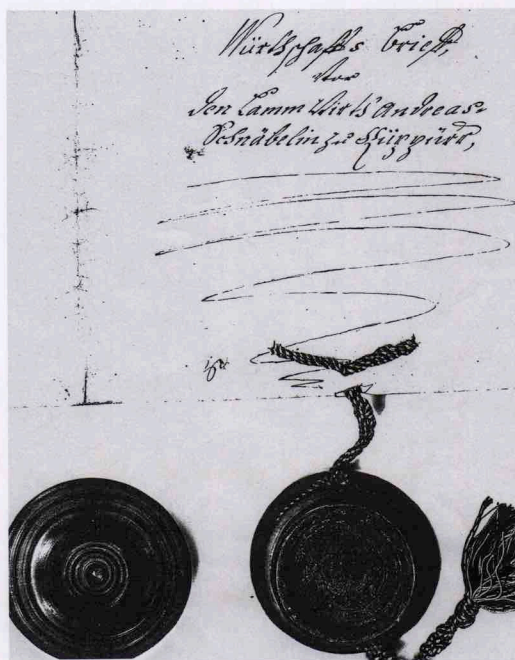 Würthschaffts Brieff,
Vor
den Lamm Wirth Andreas
Schnäbelin zu Rüppürr,